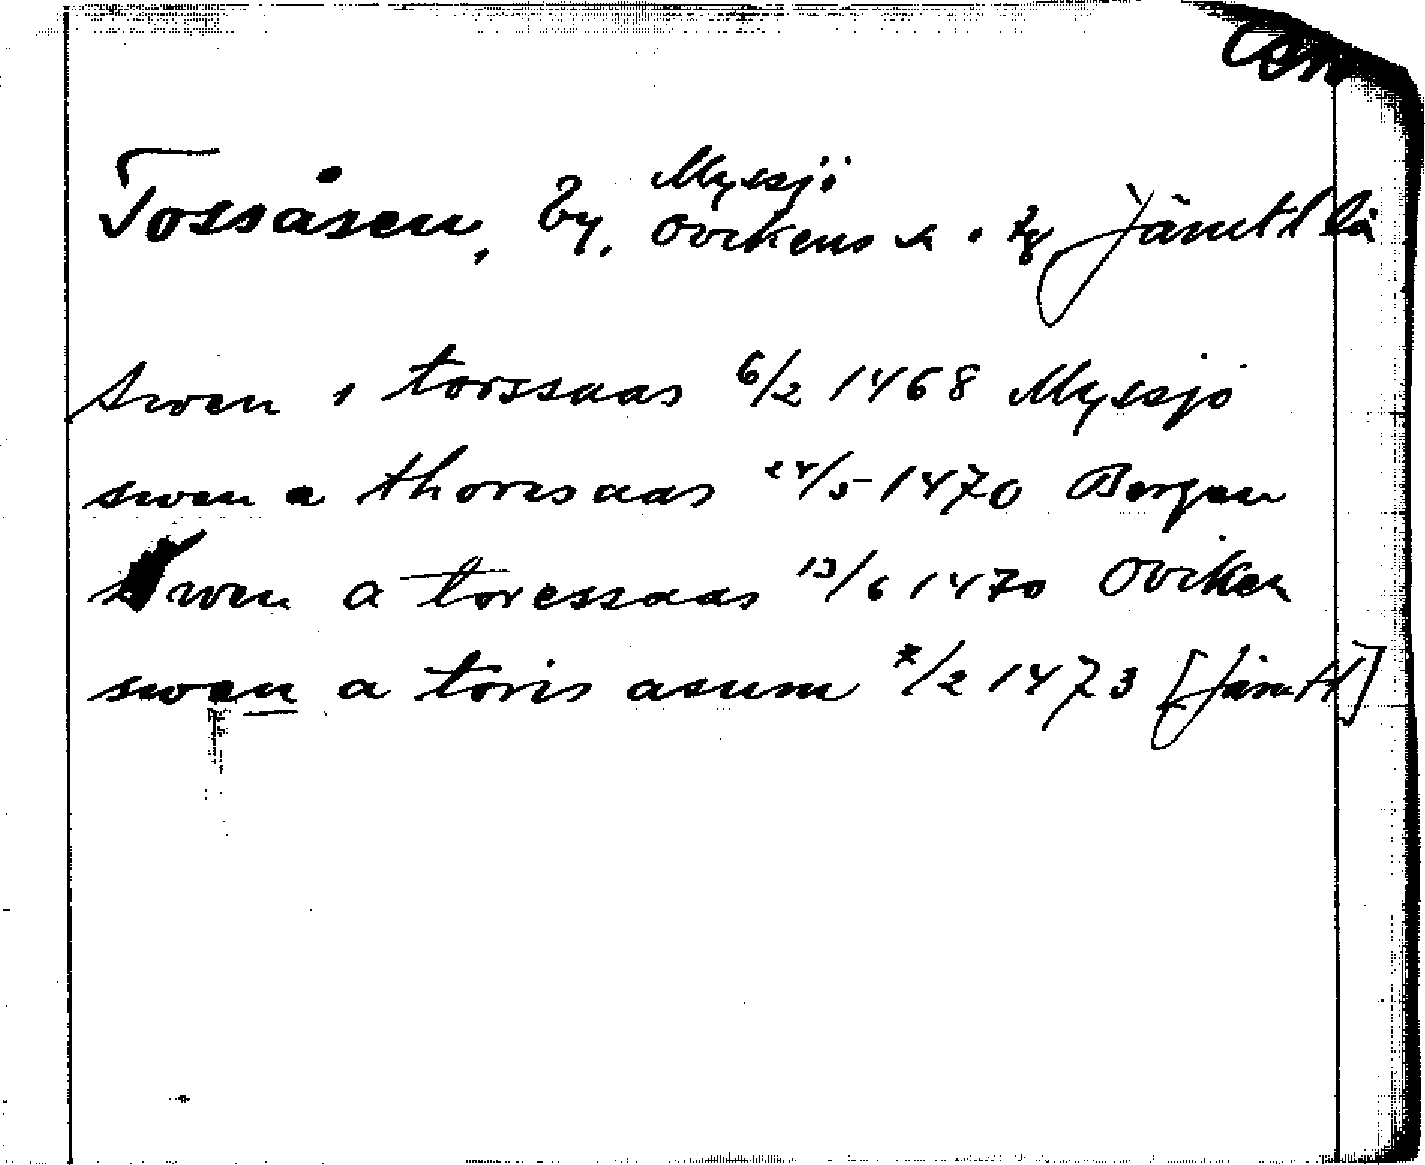 Myssjö
Tossåsen, by, Ovikens sn. tg Jämtl lä
swen i torssaas 6/2 1468 Myssjö
swen a thorrsaas 24/5 1470 Bergen
swen a toressaas 13/6 1470 Oviken
swen a toris asum */2 1473 [Jämtl]